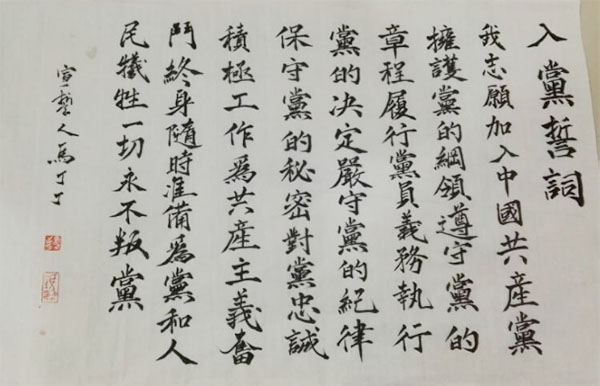 入黨誓詞
我志願加入中國共產黨
擁護黨的綱領遵守黨的
章程履行黨員義務執行
黨的決定嚴守黨的紀律
保守黨的秘密對黨忠誠
積極工作爲共產主義奮
鬥終身隨時准備爲黨和人
民犠牲一切永不叛黨
宣誓人馬丁丁